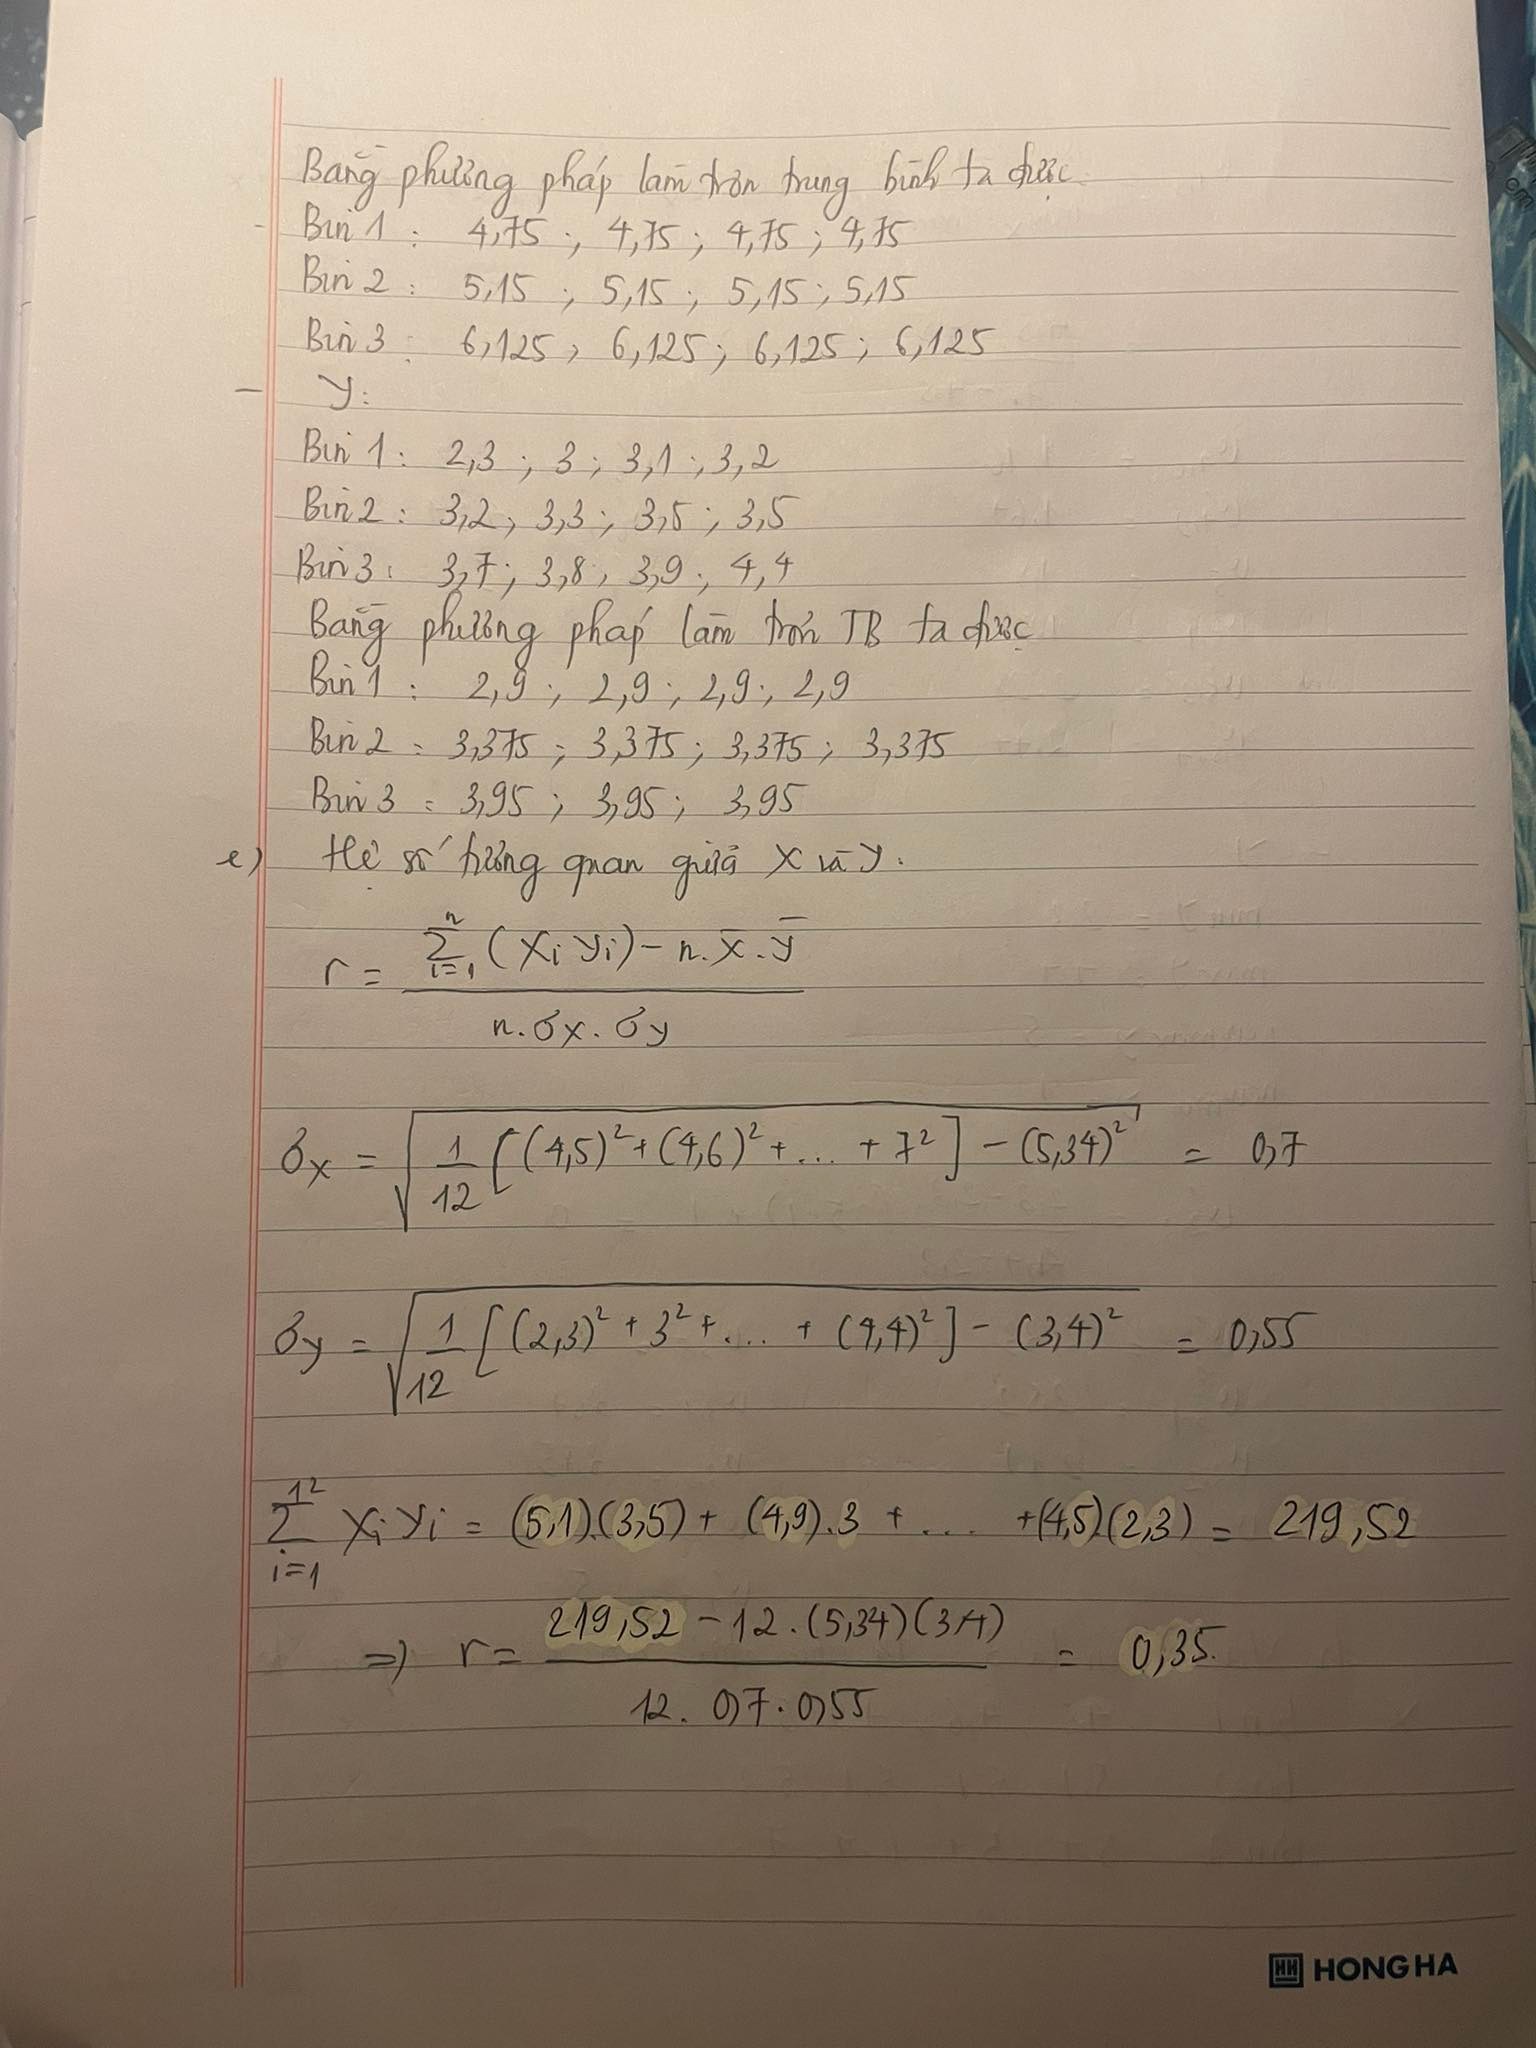 Bằng phương pháp làm trơn trung bình ta được
- Bin 1 : 4,75 ; 4,75 ; 4,75 ; 4,75
Bin 2 : 5,15 ; 5,15 ; 5,15 ; 5,15
Bin 3 : 6,125 ; 6,125 ; 6,125 ; 6,125
- y:
Bin 1 : 2,3 ; 3 ; 3,1 ; 3,2
Bin 2 : 3,2 ; 3,3 ; 3,5 ; 3,5
Bin 3 : 3,7 ; 3,8 ; 3,9 ; 4,4
Bằng phương pháp làm trơn TB ta được
Bin 1 : 2,9 ; 2,9 ; 2,9 ; 2,9
Bin 2 = 3,375 ; 3,375 ; 3,375 ; 3,375
Bin 3 = 3,95 ; 3,95 ; 3,95
e) Hệ số tương quan giữa x và y.
r = (∑_{i=1}^{n} (x_i y_i) - n. x̄ . ȳ) / (n. σx. σy)
σx = √(1/12 [(4,5)² + (4,6)² + ... + 7²] - (5,34)²) = 0,7
σy = √(1/12 [(2,3)² + 3² + ... + (4,4)²] - (3,4)²) = 0,55
∑_{i=1}^{12} x_i y_i = (5,1).(3,5) + (4,9).3 + .... + (4,5)(2,3) = 219,52
=> r = (219,52 - 12.(5,34)(3,4)) / (12. 0,7. 0,55) = 0,35.
HH HONG HA